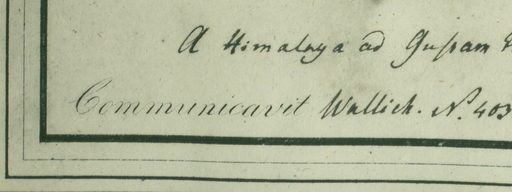 A Himalaya ad Gussam
Communicavit Wallich. No. 403